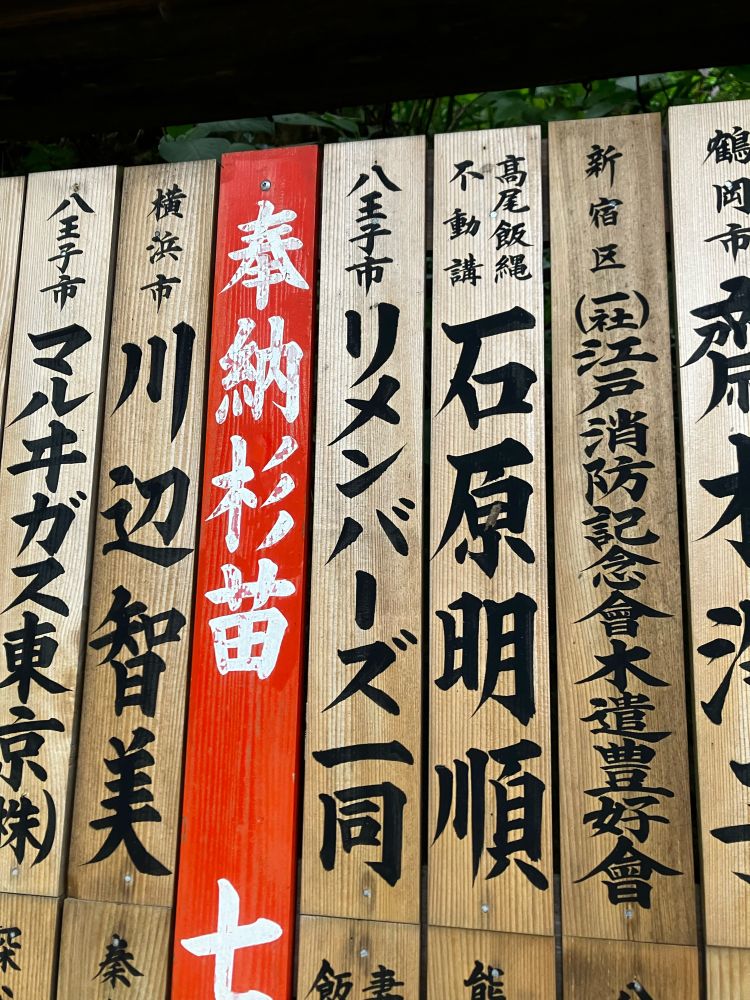 鶴岡市
齋
新宿区
(一社)江戸消防記念會木遣豊好會
高尾飯縄
不動講
石原明順
八王子市
リメンバーズ一同
奉納杉苗
七
横浜市
川辺智美
八王子市
マルヰガス東京(株)
熊
妻
飯
秦
深